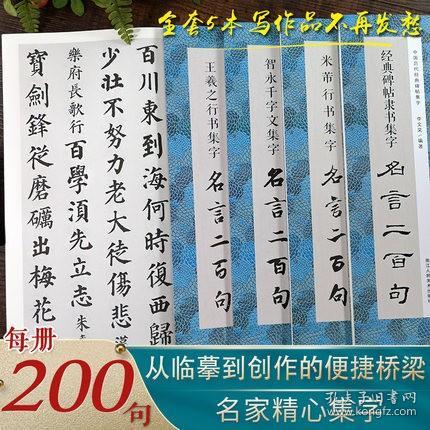 全套5本 写作品不再发愁
百川東到海何時復西歸
少壯不努力老大徒傷悲 漢
樂府長歌行 百學須先立志 朱
寶劍鋒從磨礪出梅花
王羲之行书集字
名言二百句
智永千字文集字
名言二百句
米芾行书集字
名言二百句
经典碑帖隶书集字
名言二百句
中国历代经典碑帖集字
每册
200句
从临摹到创作的便捷桥梁
名家精心集字
孔夫子旧书网
www.kongfz.com